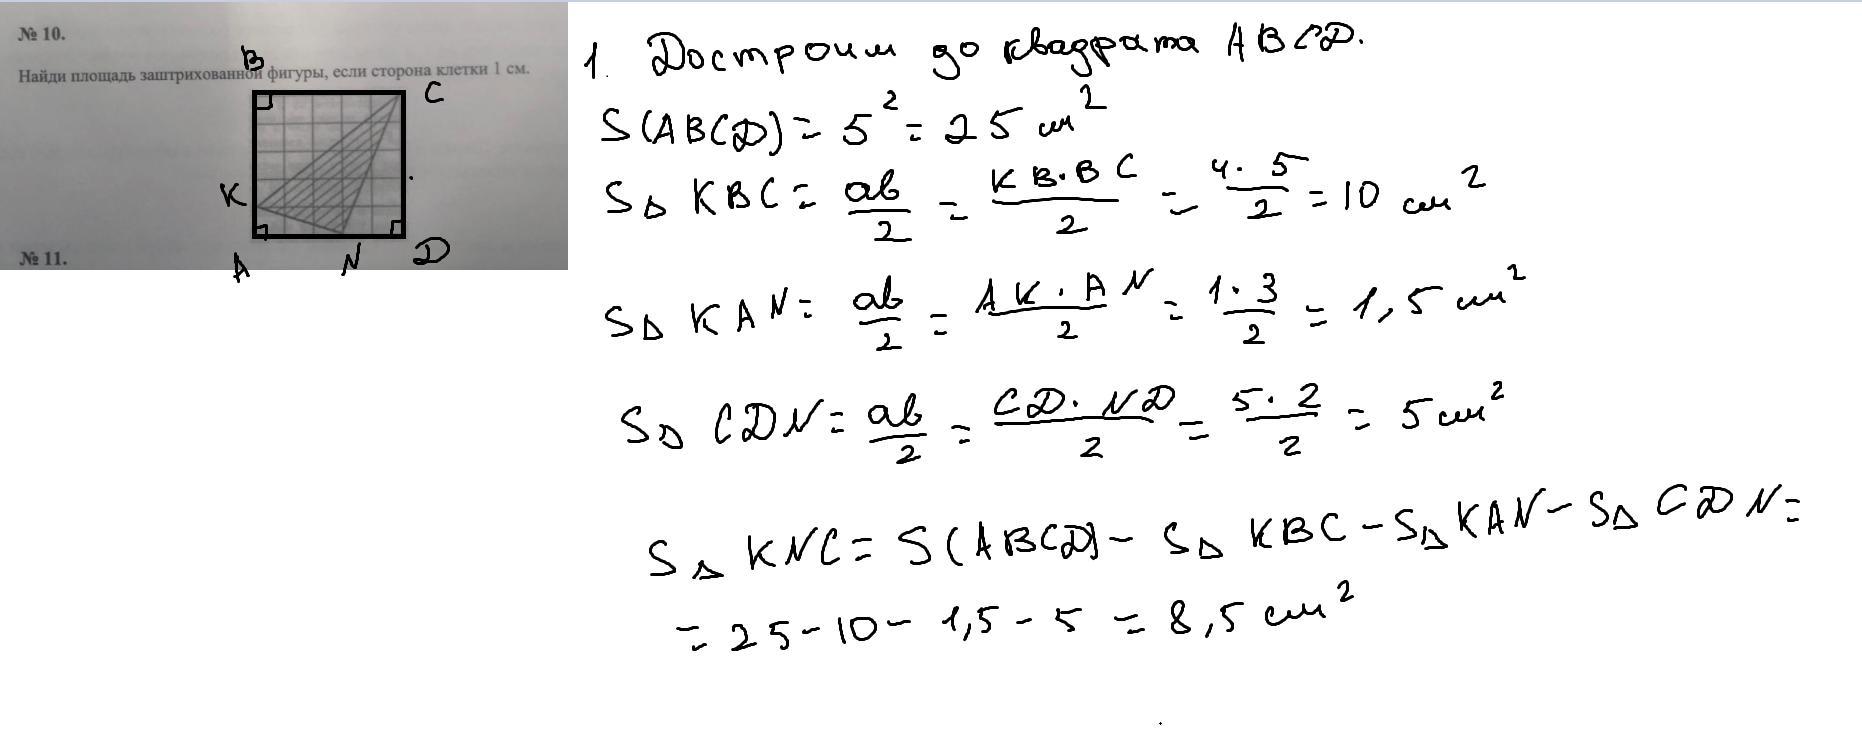 № 10.
Найди площадь заштрихованной фигуры, если сторона клетки 1 см.
B
C
K
A
N
D
№ 11.
1. Достроим до квадрата ABCD.
S(ABCD) = 5² = 25 см²
S△ KBC = ab/2 = KB·BC/2 = 4·5/2 = 10 см²
S△ KAN = ab/2 = AK·AN/2 = 1·3/2 = 1,5 см²
S△ CDN = ab/2 = CD·ND/2 = 5·2/2 = 5 см²
S△ KNC = S(ABCD) - S△ KBC - S△ KAN - S△ CDN =
= 25 - 10 - 1,5 - 5 = 8,5 см²